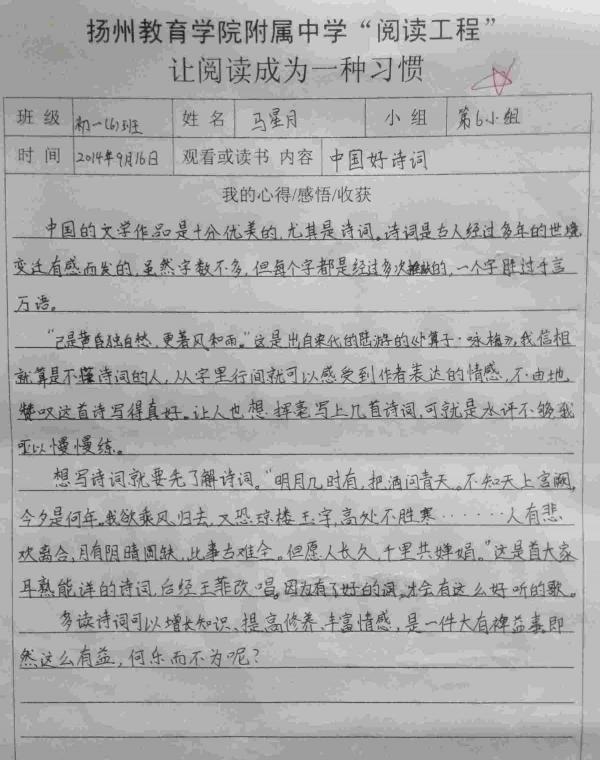 扬州教育学院附属中学“阅读工程”
让阅读成为一种习惯
班级 初一(6)班 姓名 马星月 小组 第6小组
时间 2014年9月16日 观看或读书 内容 中国好诗词
我的心得/感悟/收获
中国的文学作品是十分优美的,尤其是诗词。诗词是古人经过多年的世
变迁有感而发的,虽然字数不多,但每个字都是经过多次推敲的,一个字胜过千言
万语。
“已是黄昏独自愁,更著风和雨。”这是出自宋代的陆游的《卜算子·咏梅》,我信相
就算是不懂诗词的人,从字里行间就可以感受到作者表达的情感,不由地
赞叹这首诗写得真好。让人也想挥毫写上几首诗词,可就是水评不够我
可以慢慢练。
想写诗词就要先了解诗词。“明月几时有,把酒问青天。不知天上宫阙,
今夕是何年。我欲乘风归去,又恐琼楼玉宇,高处不胜寒·······人有悲
欢离合,月有阴晴圆缺,此事古难全。但愿人长久,千里共婵娟。”这是首大家
耳熟能详的诗词,台经王菲改唱。因为有了好的词,才会有这么好听的歌。
多读诗词可以增长知识、提高修养、丰富情感,是一件大有裨益事,即
然这么有益,何乐而不为呢?